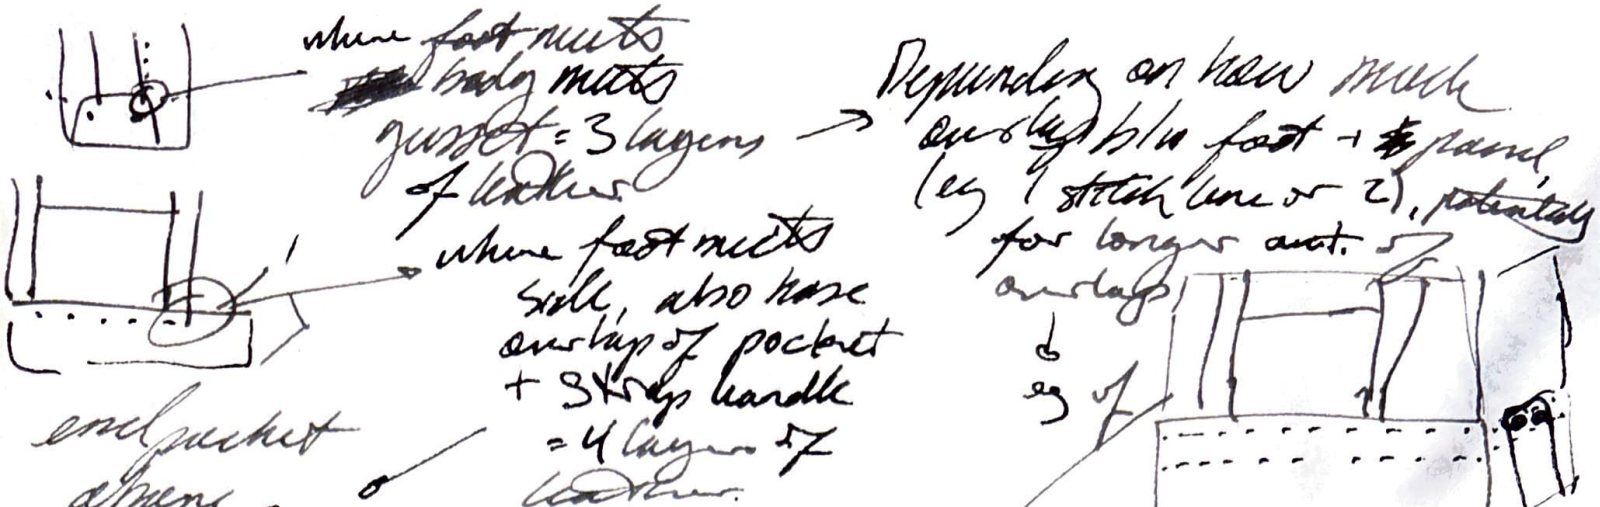 where foot meets
body meets
gusset = 3 layers
of leather.
where foot meets
side, also have
overlap of pocket
+ straps handle
= 4 layers of
leather.
end pocket
Depending on how much
overlap b/w foot + panel,
(eg 1 stitch line or 2), potentially
for longer amt. of
overlaps
eg of